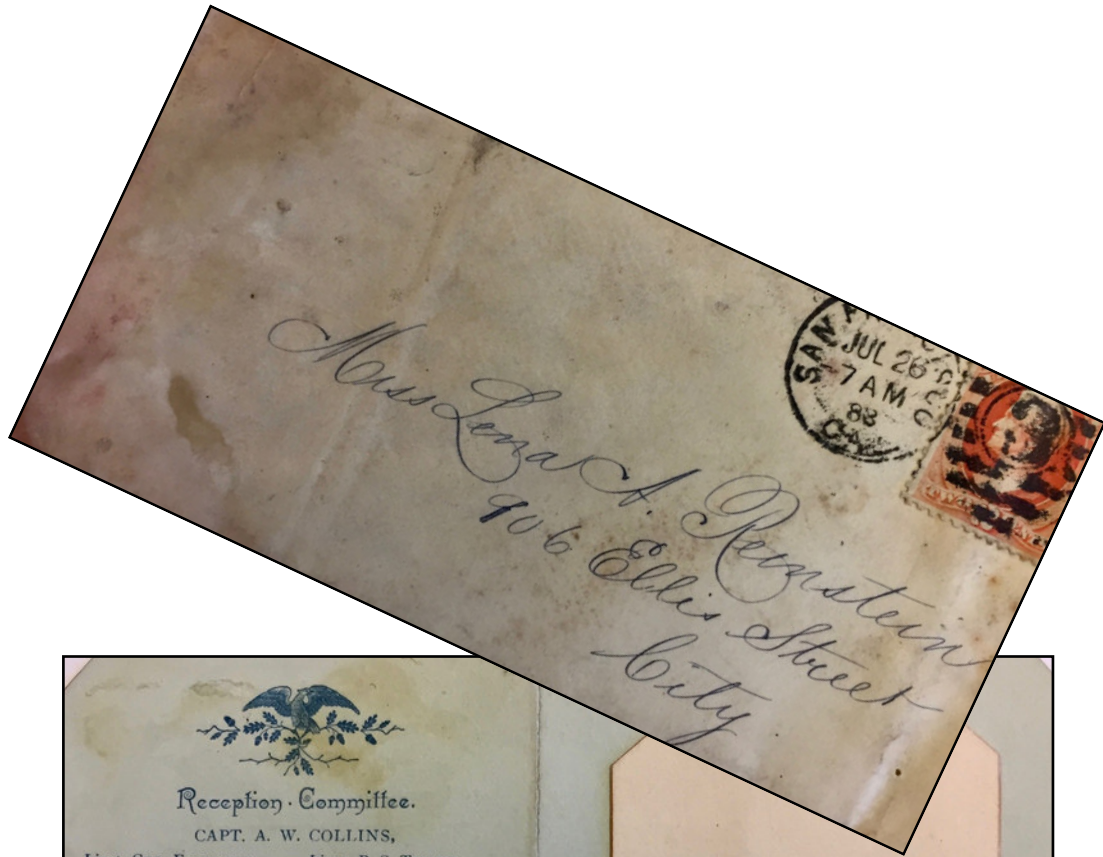 SAN
JUL 26
7 AM
88
Miss Lena A. Reinstein
906 Ellis Street
City
Reception Committee.
CAPT. A. W. COLLINS,